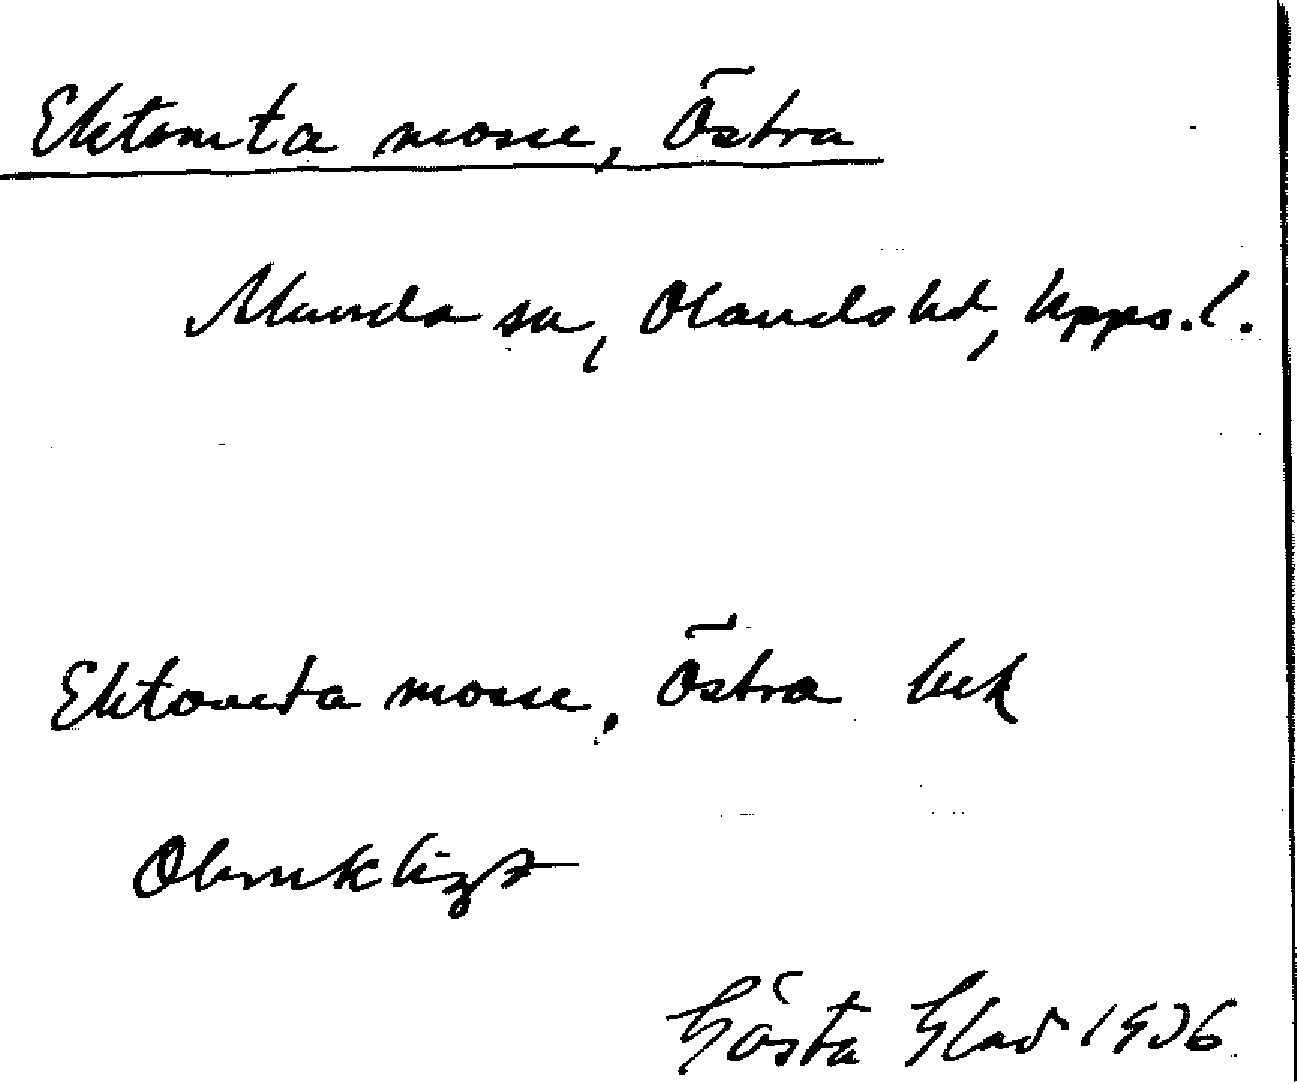 Ektomta mosse, Östra
Alunda sn, Olands hd, Upps. l.
Ektomta mosse, Östra bek
Obrukligt
Gösta Glad 1936